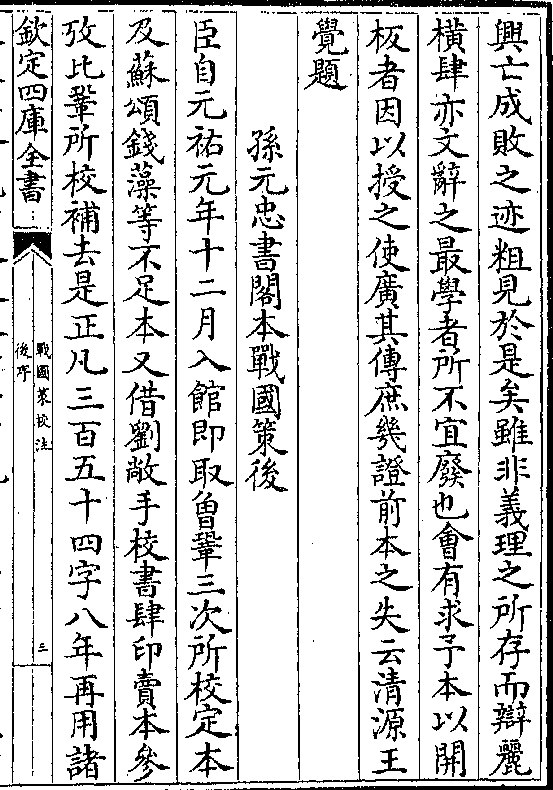 興亡成敗之迹粗見於是矣雖非義理之所存而辯麗
橫肆亦文辭之最學者所不宜廢也會有求予本以開
板者因以授之使廣其傳庶幾證前本之失云清源王
覺題
孫元忠書閣本戰國策後
臣自元祐元年十二月入館即取曾鞏三次所校定本
及蘇頌錢藻等不足本又借劉敞手校書肆印賣本參
攷比鞏所校補去是正凡三百五十四字八年再用諸
欽定四庫全書
戰國策校注
後序
三